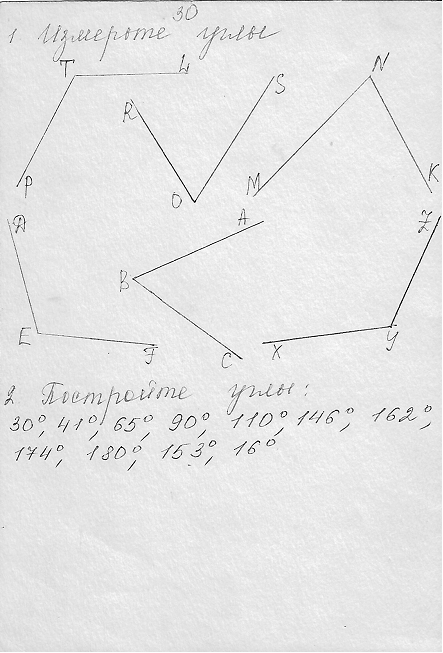 30
1 Измерьте углы
T L N
R S
P O M K
D A Z
B
E F C X Y
2 Постройте углы:
30°, 41°, 65°, 90°, 110°, 146°, 162°,
174°, 180°, 153°, 16°